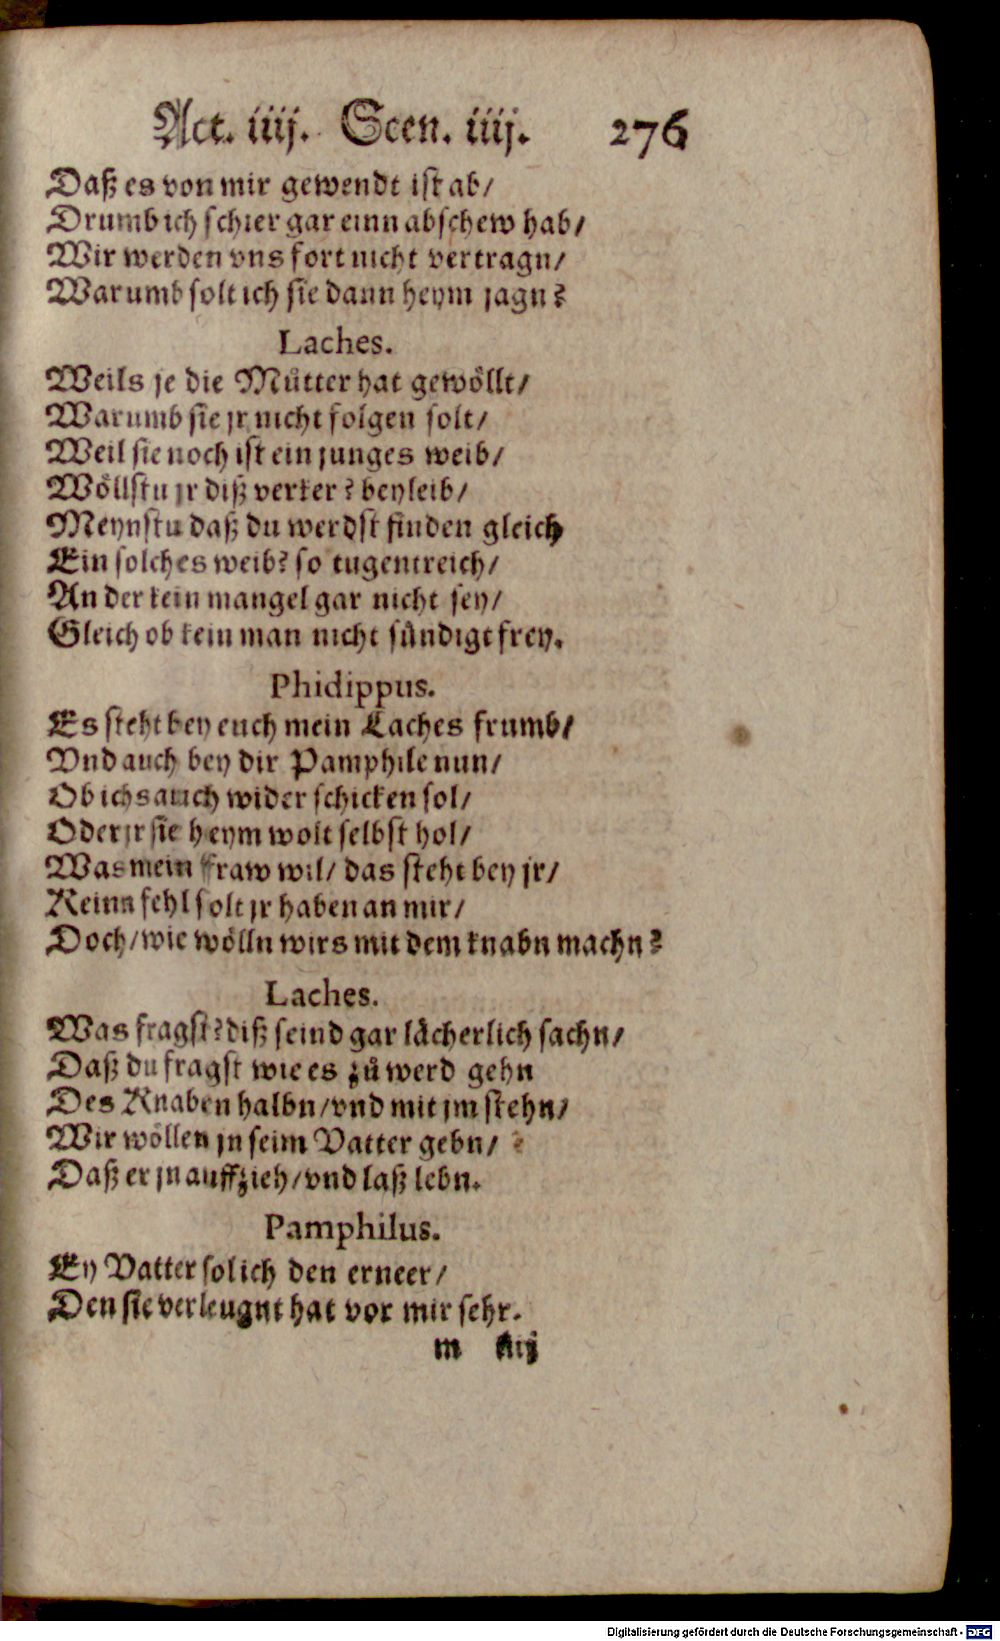 Act. iiij. Scen. iiij. 276
Daß es von mir gewendt ist ab/
Drumb ich schier gar einn abschew hab/
Wir werden vns fort nicht vertragn/
Warumb solt ich sie dann heym jagn?
Laches.
Weils je die Můtter hat gewöllt/
Warumb sie jr nicht folgen solt/
Weil sie noch ist ein junges weib/
Wöllstu jr diß verker? beyleib/
Meynstu daß du werdst finden gleich
Ein solches weib? so tugentreich/
An der kein mangel gar nicht sey/
Gleich ob kein man nicht sündigt frey.
Phidippus.
Es steht bey euch mein Laches frumb/
Vnd auch bey dir Pamphile nun/
Ob ichs auch wider schicken sol/
Oder jr sie heym wolt selbst hol/
Was mein fraw wil/ das steht bey jr/
Keinn fehl solt jr haben an mir/
Doch/ wie wölln wirs mit dem knabn machn?
Laches.
Was fragst? diß seind gar lächerlich sachn/
Daß du fragst wie es zů werd gehn
Des Knaben halbn/ vnd mit jm stehn/
Wir wöllen jn seim Vatter gebn/
Daß er jn auffzieh/ vnd laß lebn.
Pamphilus.
Ey Vatter sol ich den erneer/
Den sie verleugnt hat vor mir sehr.
m iiij
Digitalisierung gefördert durch die Deutsche Forschungsgemeinschaft - DFG